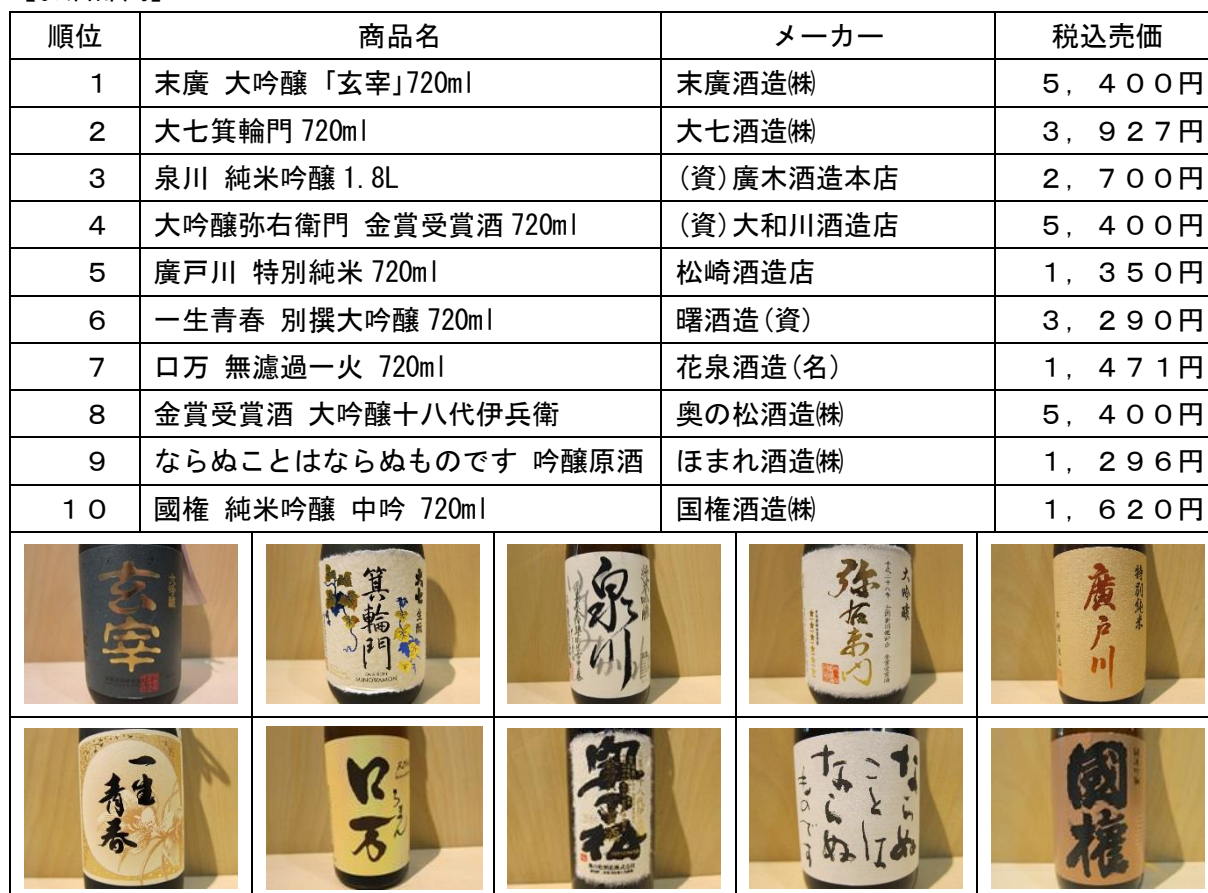 順位 商品名 メーカー 税込売価
1 末廣 大吟醸「玄宰」720ml 末廣酒造㈱ 5,400円
2 大七箕輪門 720ml 大七酒造㈱ 3,927円
3 泉川 純米吟醸 1.8L (資)廣木酒造本店 2,700円
4 大吟醸弥右衛門 金賞受賞酒 720ml (資)大和川酒造店 5,400円
5 廣戸川 特別純米 720ml 松崎酒造店 1,350円
6 一生青春 別撰大吟醸 720ml 曙酒造(資) 3,290円
7 口万 無濾過一火 720ml 花泉酒造(名) 1,471円
8 金賞受賞酒 大吟醸十八代伊兵衛 奥の松酒造㈱ 5,400円
9 ならぬことはならぬものです 吟醸原酒 ほまれ酒造㈱ 1,296円
10 國権 純米吟醸 中吟 720ml 国権酒造㈱ 1,620円
大吟醸
玄宰
大七
生酛
箕輪門
MINOWAMON
純米吟醸
泉川
大吟醸
弥右衛門
特別純米
廣戸川
一生
青春
口万
ろまん
奥の松
ならぬ
ことは
ならぬ
ものです
純米吟醸
國権